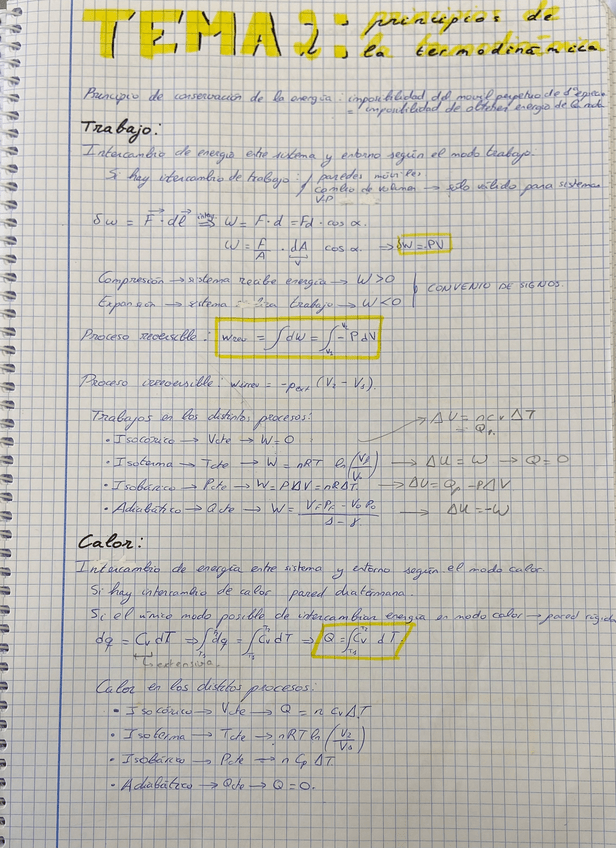 TEMA 2: principios de
la termodinámica
Principio de conservación de la energía: imposibilidad del movil perpetuo de 1ª especie
= imposibilidad de obtener energía de la nada.
Trabajo:
Intercambio de energía entre sistema y entorno según el modo trabajo.
Si hay intercambio de trabajo: paredes móviles
cambio de volumen → sólo válido para sistemas
V.P
δw = F⃗ · dl⃗ ⇒ W = F · d = Fd · cos α.
W = F/A · dA cos α → δW = -PV
V
Compresión → sistema recibe energía → W>0
CONVENIO DE SIGNOS.
Expansión → sistema realiza trabajo → W<0
Proceso reversible: Wrev = ∫dW = ∫ -PdV
Proceso irreversible: Wirrev = -Pext (V2 - V1).
Trabajos en los distintos procesos:
→ ΔU = ncvΔT
= Qv
• Isocórico → Vcte → W=0
• Isoterma → Tcte → W = nRT ln(Vf/V0) → ΔU = W → Q=0
• Isobárico → Pcte → W=PΔV=nRΔT. → ΔU=Qp -PΔV
• Adiabático → Qcte → W = VfPf - V0P0 / 1-γ → ΔU=-W
Calor:
Intercambio de energía entre sistema y entorno según el modo calor
Si hay intercambio de calor pared diatérmana.
Si el único modo posible de intercambiar energía en modo calor → pared rígida
dq = Cv dT ⇒ ∫dq = ∫Cv dT ⇒ Q = ∫Cv dT.
extensiva.
Calor en los distintos procesos:
• Isocórico → Vcte → Q = n cv ΔT
• Isoterma → Tcte → nRT ln (V2/V1)
• Isobárico → Pcte → n Cp ΔT.
• Adiabático → Qcte → Q = 0.